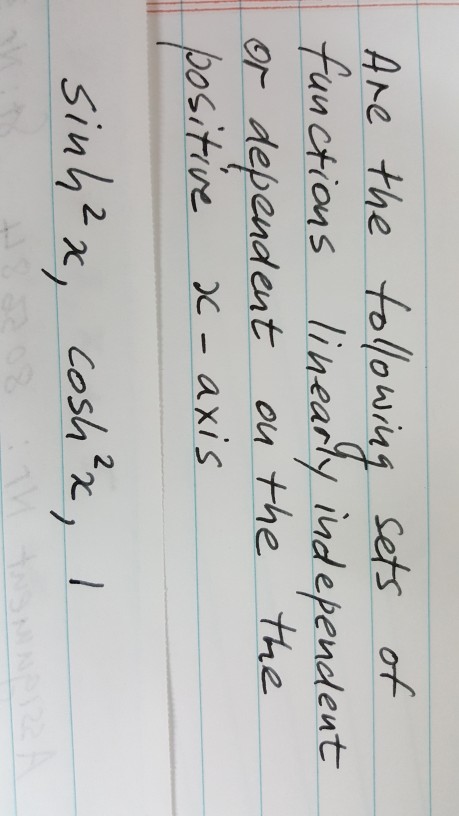 Are the following sets of
functions linearly independent
or dependent on the the
positive x-axis
sinh²x, cosh²x, 1